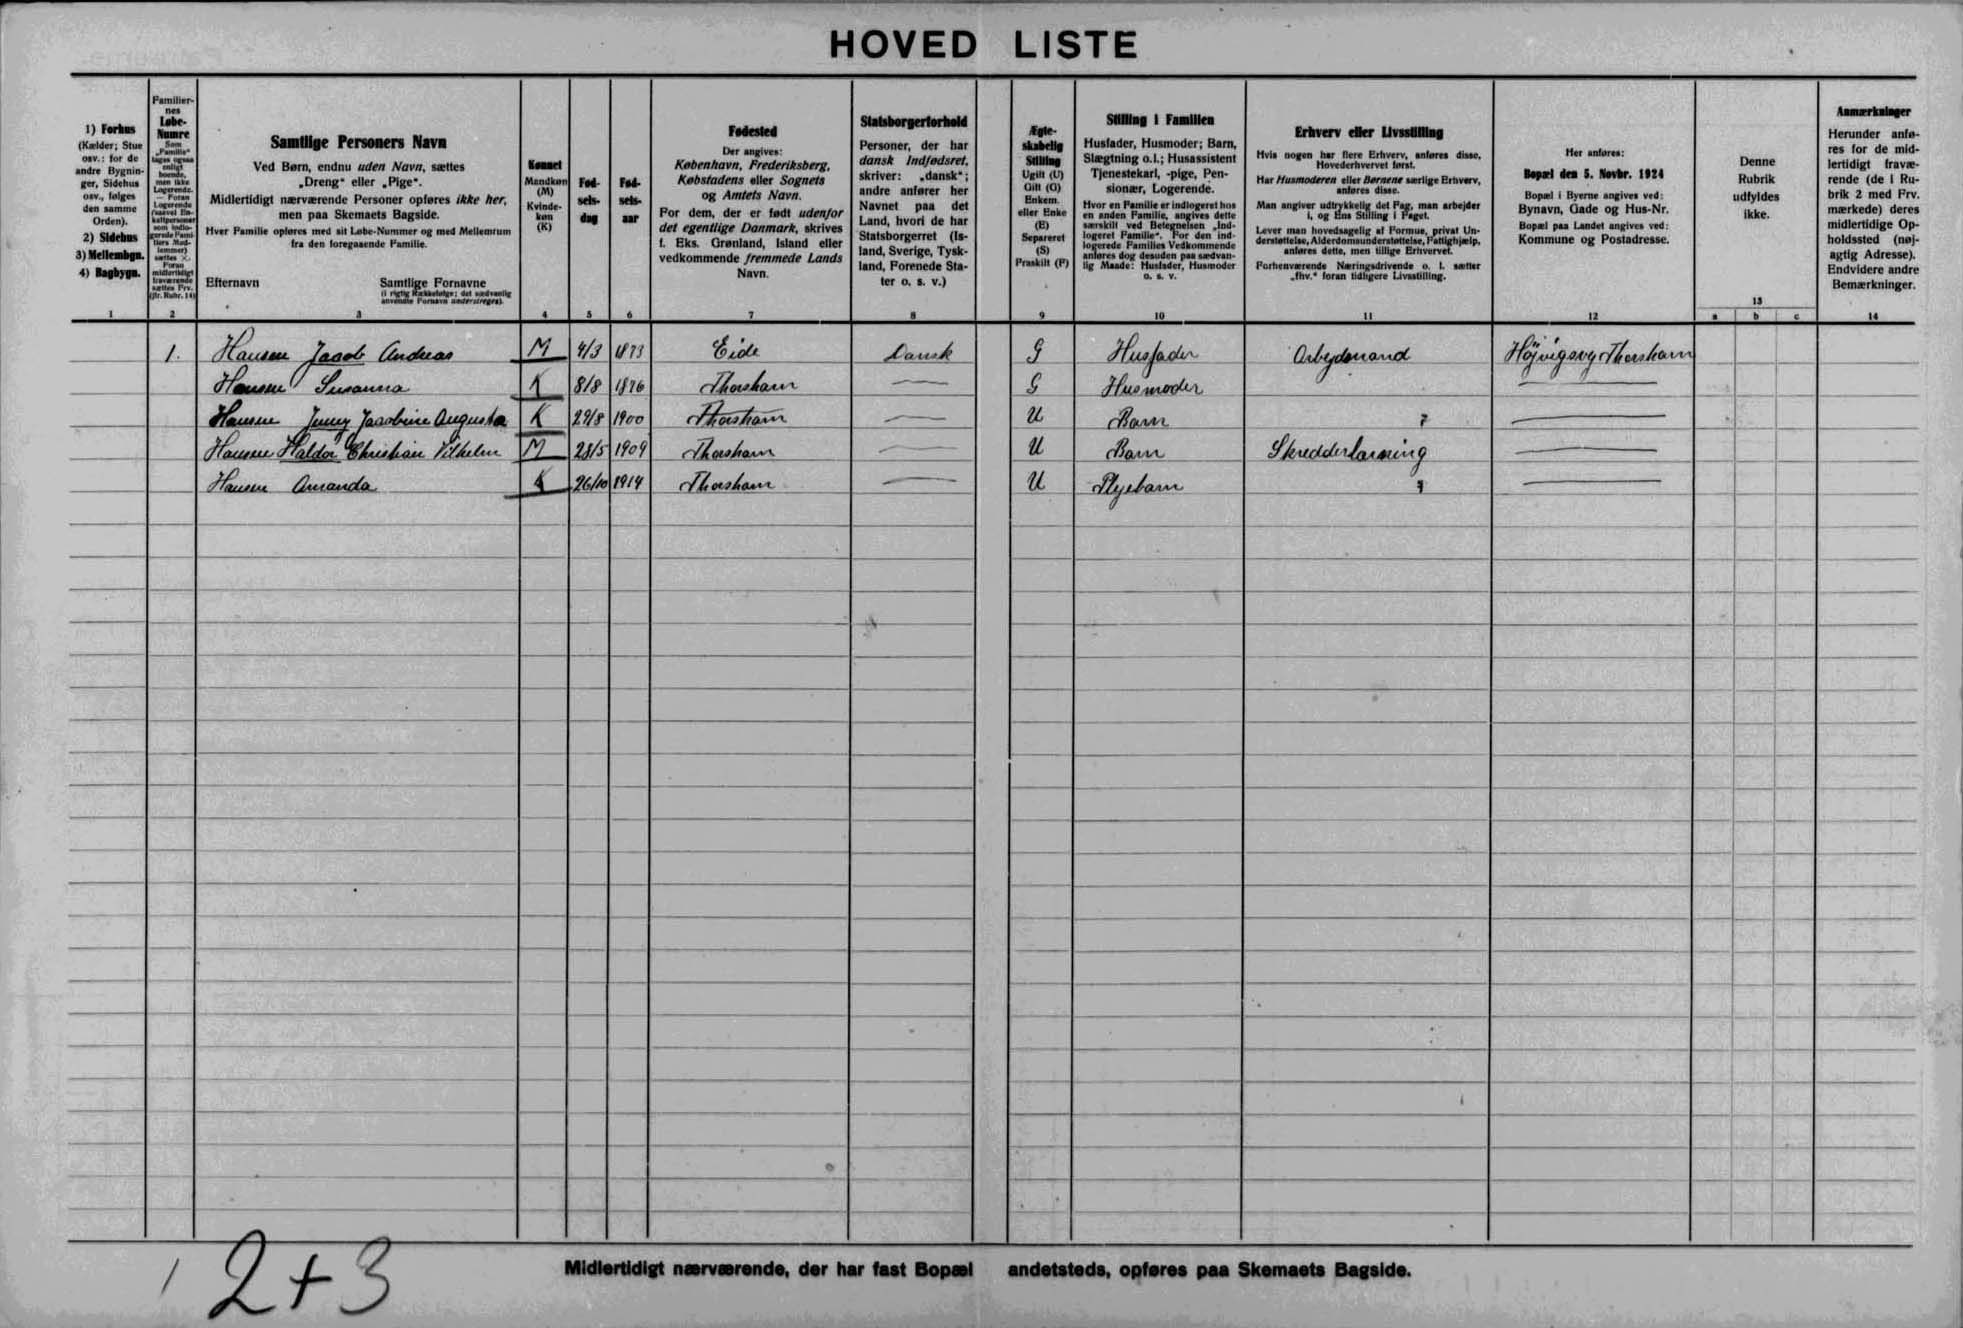 HOVED LISTE
1) Forhus
(Kælder; Stue
osv.: for de
andre Bygnin-
ger, Sidehus
osv., følges
den samme
Orden).
2) Sidehus
3) Mellembgn.
4) Bagbygn.
1
Familier-
nes
Løbe-
Numre
Som
„Familie“
tages ogsaa
enligt
boende,
men ikke
Logerende.
— Foran
Logerende
(saavel En-
keltpersoner
som indlo-
gerede Fami-
liers Med-
lemmer)
sættes ×.
Foran
midlertidigt
fraværende
sættes Frv.
(jfr. Rubr. 14)
2
Samtlige Personers Navn
Ved Børn, endnu uden Navn, sættes
„Dreng“ eller „Pige“.
Midlertidigt nærværende Personer opføres ikke her,
men paa Skemaets Bagside.
Hver Familie opføres med sit Løbe-Nummer og med Mellemrum
fra den foregaaende Familie.
Efternavn Samtlige Fornavne
(i rigtig Rækkefølge; det sædvanlig
anvendte Fornavn understreges).
3
Kønnet
Mandkøn
(M)
Kvinde-
køn
(K)
4
Fød-
sels-
dag
5
Fød-
sels-
aar
6
Fødested
Der angives:
København, Frederiksberg,
Købstadens eller Sognets
og Amtets Navn.
For dem, der er født udenfor
det egentlige Danmark, skrives
f. Eks. Grønland, Island eller
vedkommende fremmede Lands
Navn.
7
Statsborgerforhold
Personer, der har
dansk Indfødsret,
skriver: „dansk“;
andre anfører her
Navnet paa det
Land, hvori de har
Statsborgerret (Is-
land, Sverige, Tysk-
land, Forenede Sta-
ter o. s. v.)
8
Ægte-
skabelig
Stilling
Ugift (U)
Gift (G)
Enkem.
eller Enke
(E)
Separeret
(S)
Fraskilt (F)
9
Stilling i Familien
Husfader, Husmoder; Barn,
Slægtning o.l.; Husassistent
Tjenestekarl, -pige, Pen-
sionær, Logerende.
Hvor en Familie er indlogeret hos
en anden Familie, angives dette
særskilt ved Betegnelsen „Ind-
logeret Familie“. For den ind-
logerede Families Vedkommende
anføres dog desuden paa sædvan-
lig Maade: Husfader, Husmoder
o. s. v.
10
Erhverv eller Livsstilling
Hvis nogen har flere Erhverv, anføres disse,
Hovederhvervet først.
Har Husmoderen eller Børnene særlige Erhverv,
anføres disse.
Man angiver udtrykkelig det Fag, man arbejder
i, og Ens Stilling i Faget.
Lever man hovedsagelig af Formue, privat Un-
derstøttelse, Alderdomsunderstøttelse, Fattighjælp,
anføres dette, men tillige Erhvervet.
Forhenværende Næringsdrivende o. l. sætter
„fhv.“ foran tidligere Livsstilling.
11
Her anføres:
Bopæl den 5. Novbr. 1924
Bopæl i Byerne angives ved:
Bynavn, Gade og Hus-Nr.
Bopæl paa Landet angives ved:
Kommune og Postadresse.
12
Denne
Rubrik
udfyldes
ikke.
13
a b c
Anmærkninger
Herunder anfø-
res for de mid-
lertidigt fravæ-
rende (de i Ru-
brik 2 med Frv.
mærkede) deres
midlertidige Op-
holdssted (nøj-
agtig Adresse).
Endvidere andre
Bemærkninger.
14
1. Hansen Jacob Andreas M 4/3 1873 Eide Dansk G Husfader Arbejdsmand Højvigsvg Thorshavn
Hansen Susanna K 8/8 1876 Thorshavn — G Husmoder —
Hansen Jenny Jacobine Augusta K 29/8 1900 Thorshavn — U Barn —
Hansen Haldor Christian Vilhelm M 28/5 1909 Thorshavn — U Barn Skredderlærning —
Hansen Amanda K 26/10 1914 Thorshavn — U Plejebarn —
Midlertidigt nærværende, der har fast Bopæl andetsteds, opføres paa Skemaets Bagside.
1 2+3